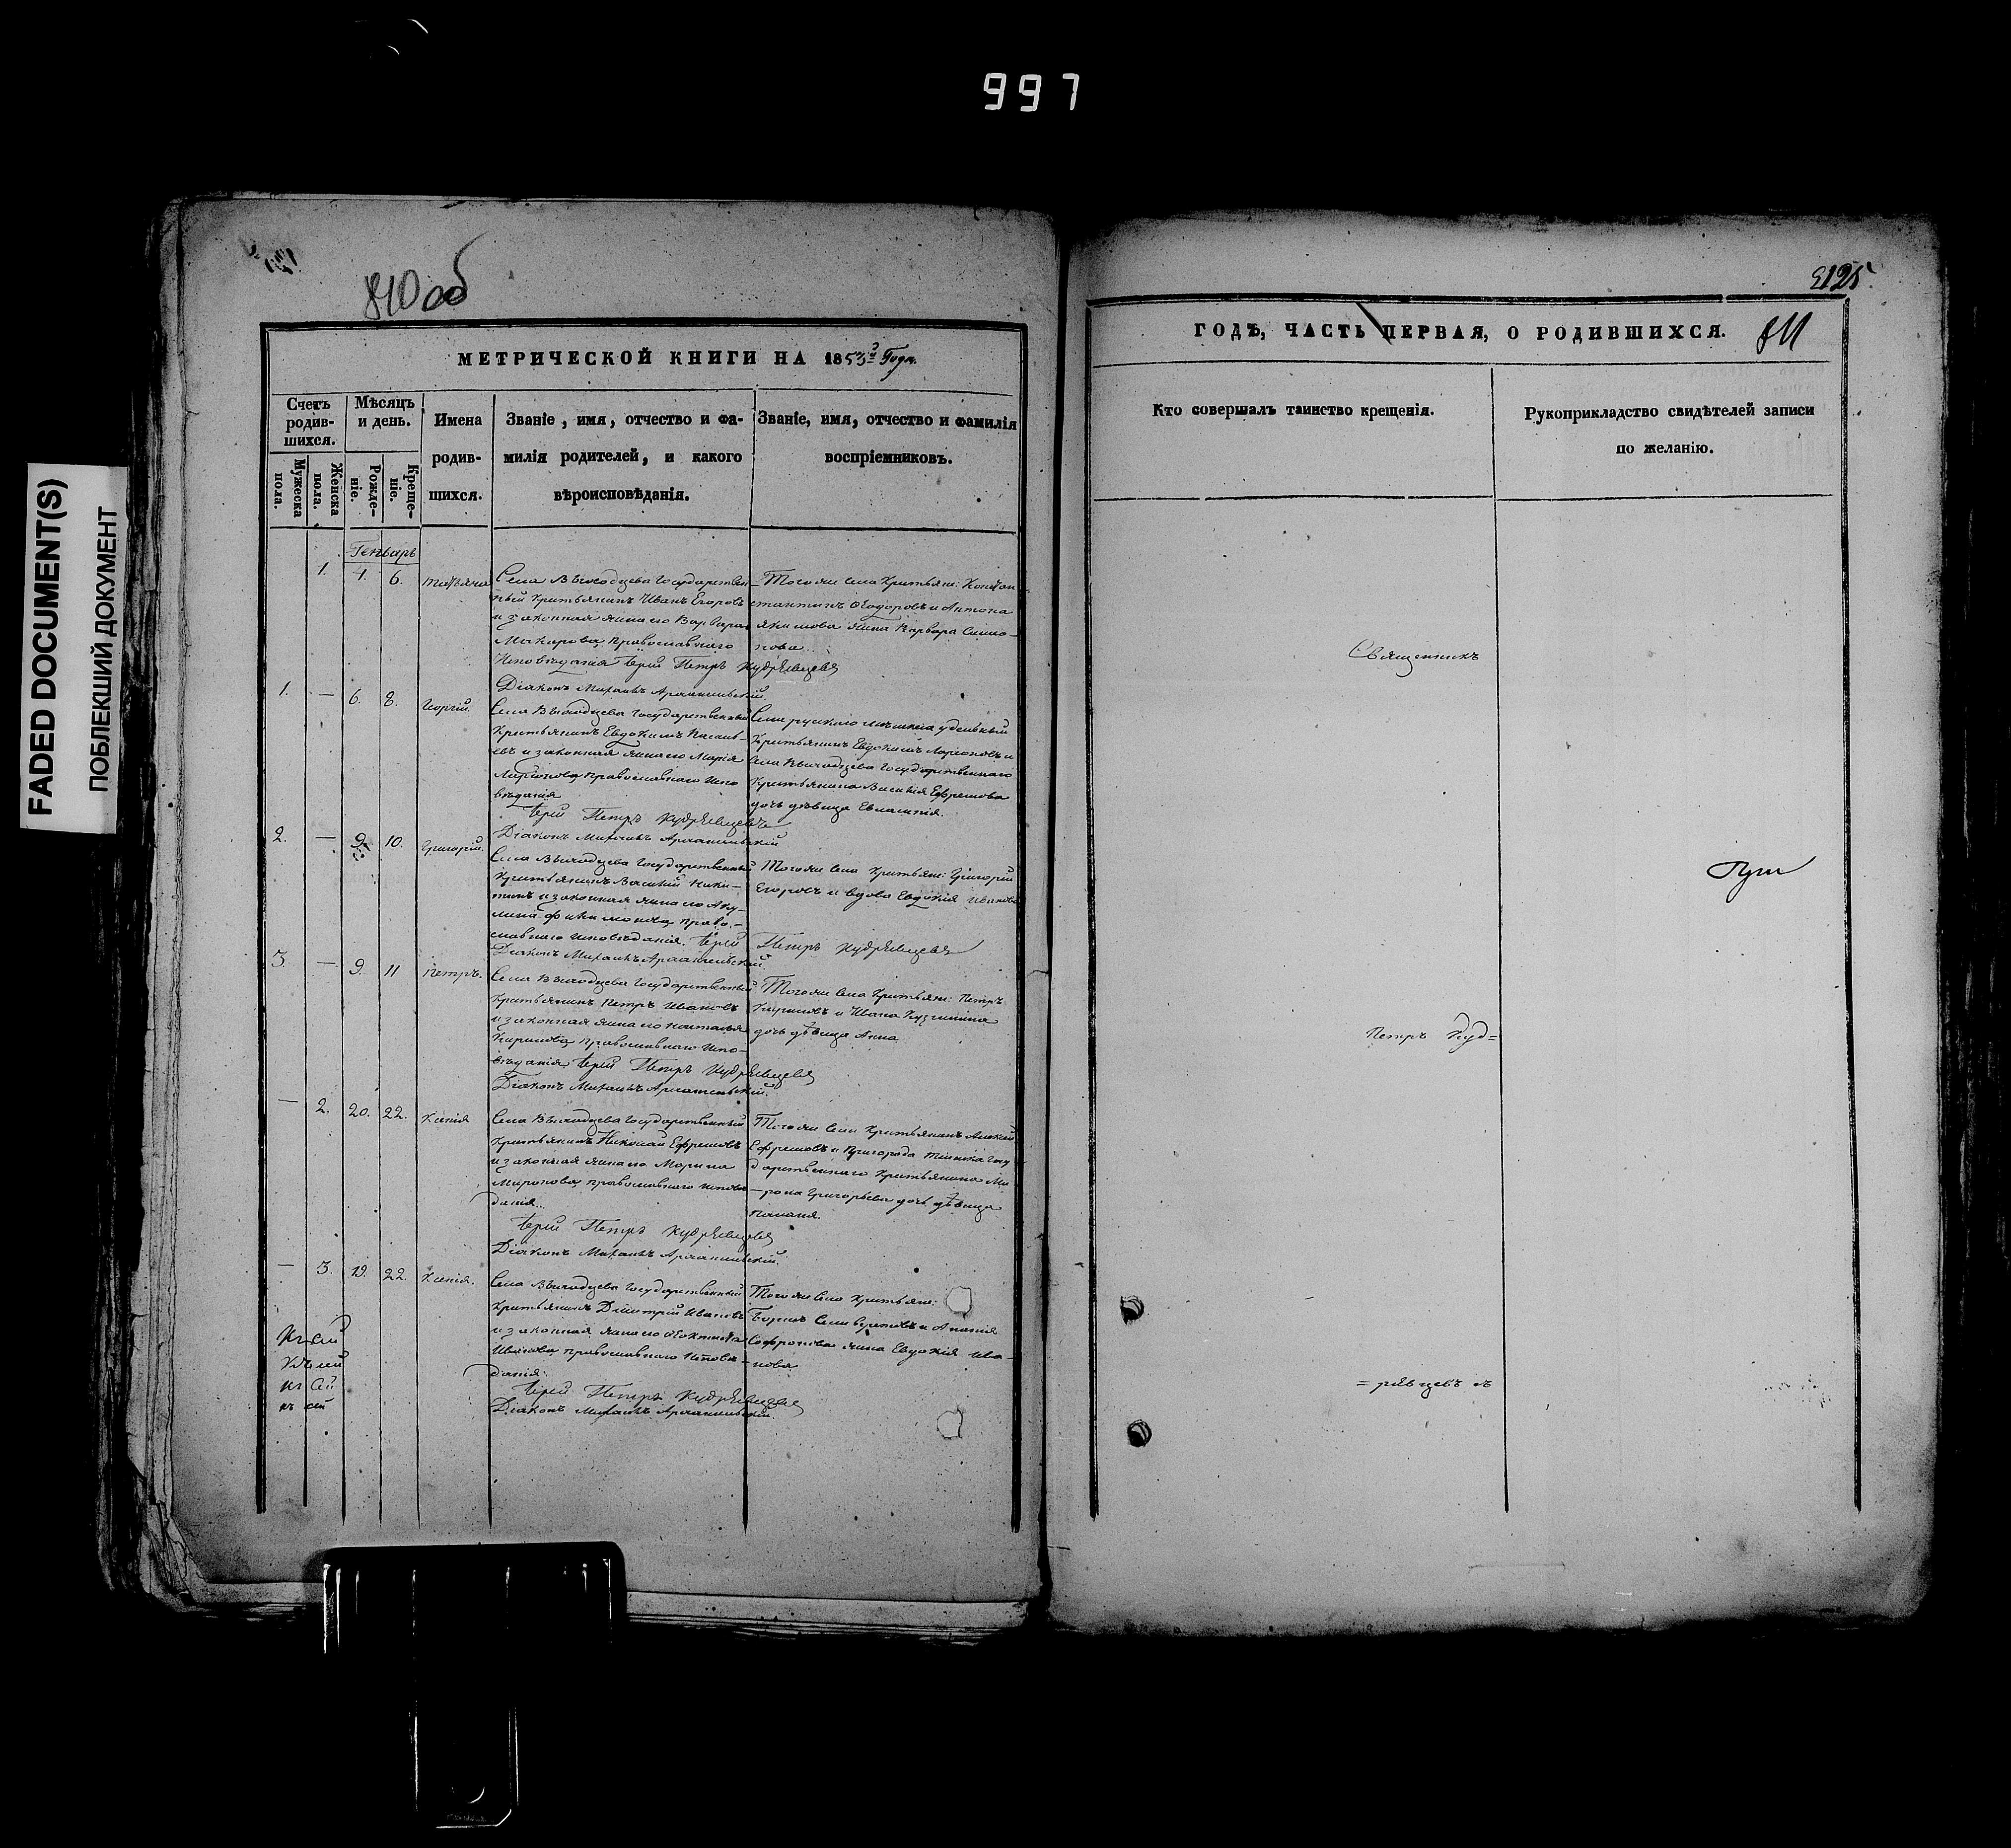 997
FADED DOCUMENT(S)
ПОБЛЕКШИЙ ДОКУМЕНТ
810 об
МЕТРИЧЕСКОЙ КНИГИ НА 1853 Года.
Счетъ родив-шихся.
Мужеска пола.
Женска пола.
Мѣсяцъ и день.
Рожде-ніе.
Креще-ніе.
Имена родив-шихся.
Званіе, имя, отчество и фа-
милія родителей, и какого
вѣроисповѣданія.
Званіе, имя, отчество и фамилія
воспріемниковъ.
Генварь
1. 4. 6. Татьяна
Села Выходцева Государствен-
ный Крестьянинъ Иванъ Егоровъ
и законная жена его Варвара
Макарова православнаго
Исповѣданія Іерей Петръ Кудрявцевъ
Діаконъ Михаилъ Архангельскій.
Тогоже села Крестьяне: Констан
стантинъ Ѳеодоровъ и Антона
Якимова жена Варвара Симо-
нова.
1. — 6. 8. Георгій.
Села Выходцева Государственный
Крестьянинъ Евдокимъ
евъ и законная жена его Марія
Ларіонова православнаго Испо
вѣданія
Іерей Петръ Кудрявцевъ
Діаконъ Михаилъ Архангельскій
удѣльный
Крестьянинъ Евдокимъ Ларіоновъ и
села Выходцева Государственнаго
Крестьянина Василія Ефремова
дочь дѣвица
2. — 9. 10. Григорій.
Села Выходцева Государственный
Крестьянинъ Василій Ники-
тинъ и законная жена его Аку-
лина Филимонова право-
славнаго исповѣданія. Іерей Петръ Кудрявцевъ
Діаконъ Михаилъ Архангельскій.
Тогоже села Крестьяне: Григорій
Егоровъ и вдова Евдокія Иванова
3. — 9. 11 Петръ.
Села Выходцева Государственный
Крестьянинъ Петръ Ивановъ
и законная жена его Наталья
Кирилова православнаго Испо-
вѣданія Іерей Петръ Кудрявцевъ
Діаконъ Михаилъ Архангельскій.
Тогоже села Крестьяне: Петръ
Кириловъ и Ивана Кузмина
дочь дѣвица Анна
— 2. 20. 22. Ксенія
Села Выходцева Государственный
Крестьянинъ Николай Ефремовъ
и законная жена его Марина
Миронова православнаго исповѣ
данія..
Іерей Петръ Кудрявцевъ
Діаконъ Михаилъ Архангельскій.
Тогоже села Крестьянинъ Алексей
Ефремовъ и Пригорода Госу
дарственнаго Крестьянина Ми
-рона Григорьева дочь дѣвица
— 3. 19. 22. Ксенія.
Села Выходцева Государственный
Крестьянинъ Дмитрій Ивановъ
и законная жена его Ѳеоктиста
Иванова православнаго Исповѣ-
данія.
Іерей Петръ Кудрявцевъ
Діаконъ Михаилъ Архангельскій.
Тогоже села Крестьяне:
Софронова жена Евдокія Ива-
нова
къ сей
къ сей
125
ГОДЪ, ЧАСТЬ ПЕРВАЯ, О РОДИВШИХСЯ. 811
Кто совершалъ таинство крещенія.
Рукоприкладство свидѣтелей записи
по желанію.
Священникъ
Петръ Куд=
=рявцевъ